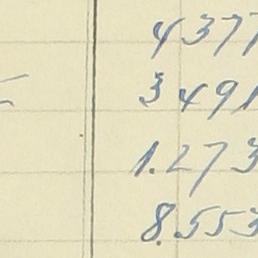 4377
3491
1.273
8.553